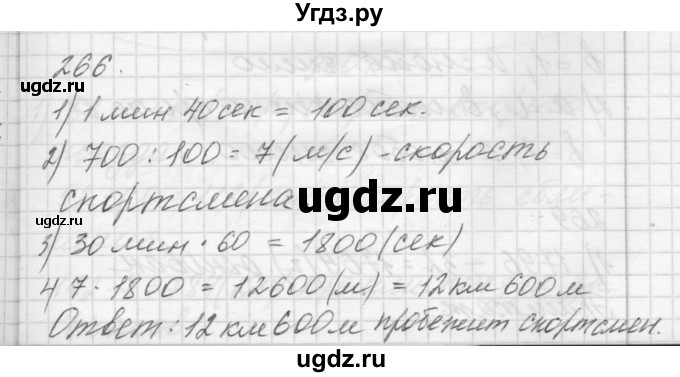 Угдз.ру
266.
1) 1 мин 40 сек = 100 сек.
2) 700 : 100 = 7 (м/с) - скорость
спортсмена
3) 30 мин · 60 = 1800 (сек)
4) 7 · 1800 = 12600 (м) = 12 км 600 м
Ответ: 12 км 600 м пробежит спортсмен.
ugdz.ru
ugdz.ru
ugdz.ru
ugdz.ru
ugdz.ru
ugdz.ru
ugdz.ru